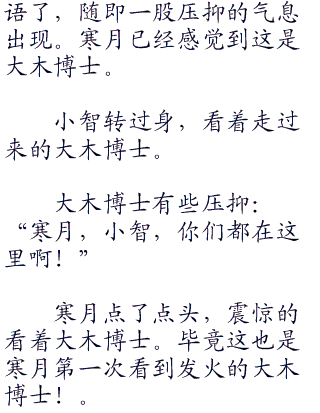 语了，随即一股压抑的气息
出现。寒月已经感觉到这是
大木博士。
小智转过身，看着走过
来的大木博士。
大木博士有些压抑：
“寒月，小智，你们都在这
里啊！”
寒月点了点头，震惊的
看着大木博士。毕竟这也是
寒月第一次看到发火的大木
博士！。